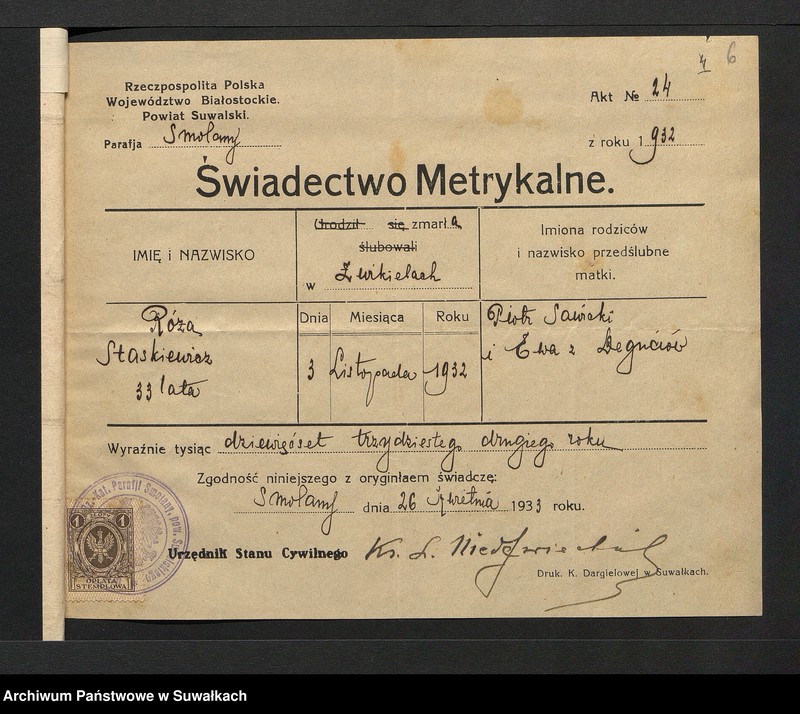 4 6
Rzeczpospolita Polska
Województwo Białostockie.
Powiat Suwalski.
Parafja Smolany
Akt № 24
z roku 1932
Świadectwo Metrykalne.
IMIĘ i NAZWISKO
Urodził się zmarła
ślubowali
w Żwikielach
Imiona rodziców
i nazwisko przedślubne
matki.
Dnia Miesiąca Roku
Róża
Staskiewicz
33 lata
3 Listopada 1932
Piotr Sawicki
i Ewa z Degućiów
Wyraźnie tysiąc dziewięćset trzydziestego drugiego roku
Zgodność niniejszego z oryginłaem świadczę:
Smolany dnia 26 Kwietnia 1933 roku.
Kat. Parafji Smolany, pow.
1 1
OPŁATA
STEMPLOWA
Urzędnik Stanu Cywilnego Ks. L.
Druk. K. Dargielowej w Suwałkach.
Archiwum Państwowe w Suwałkach